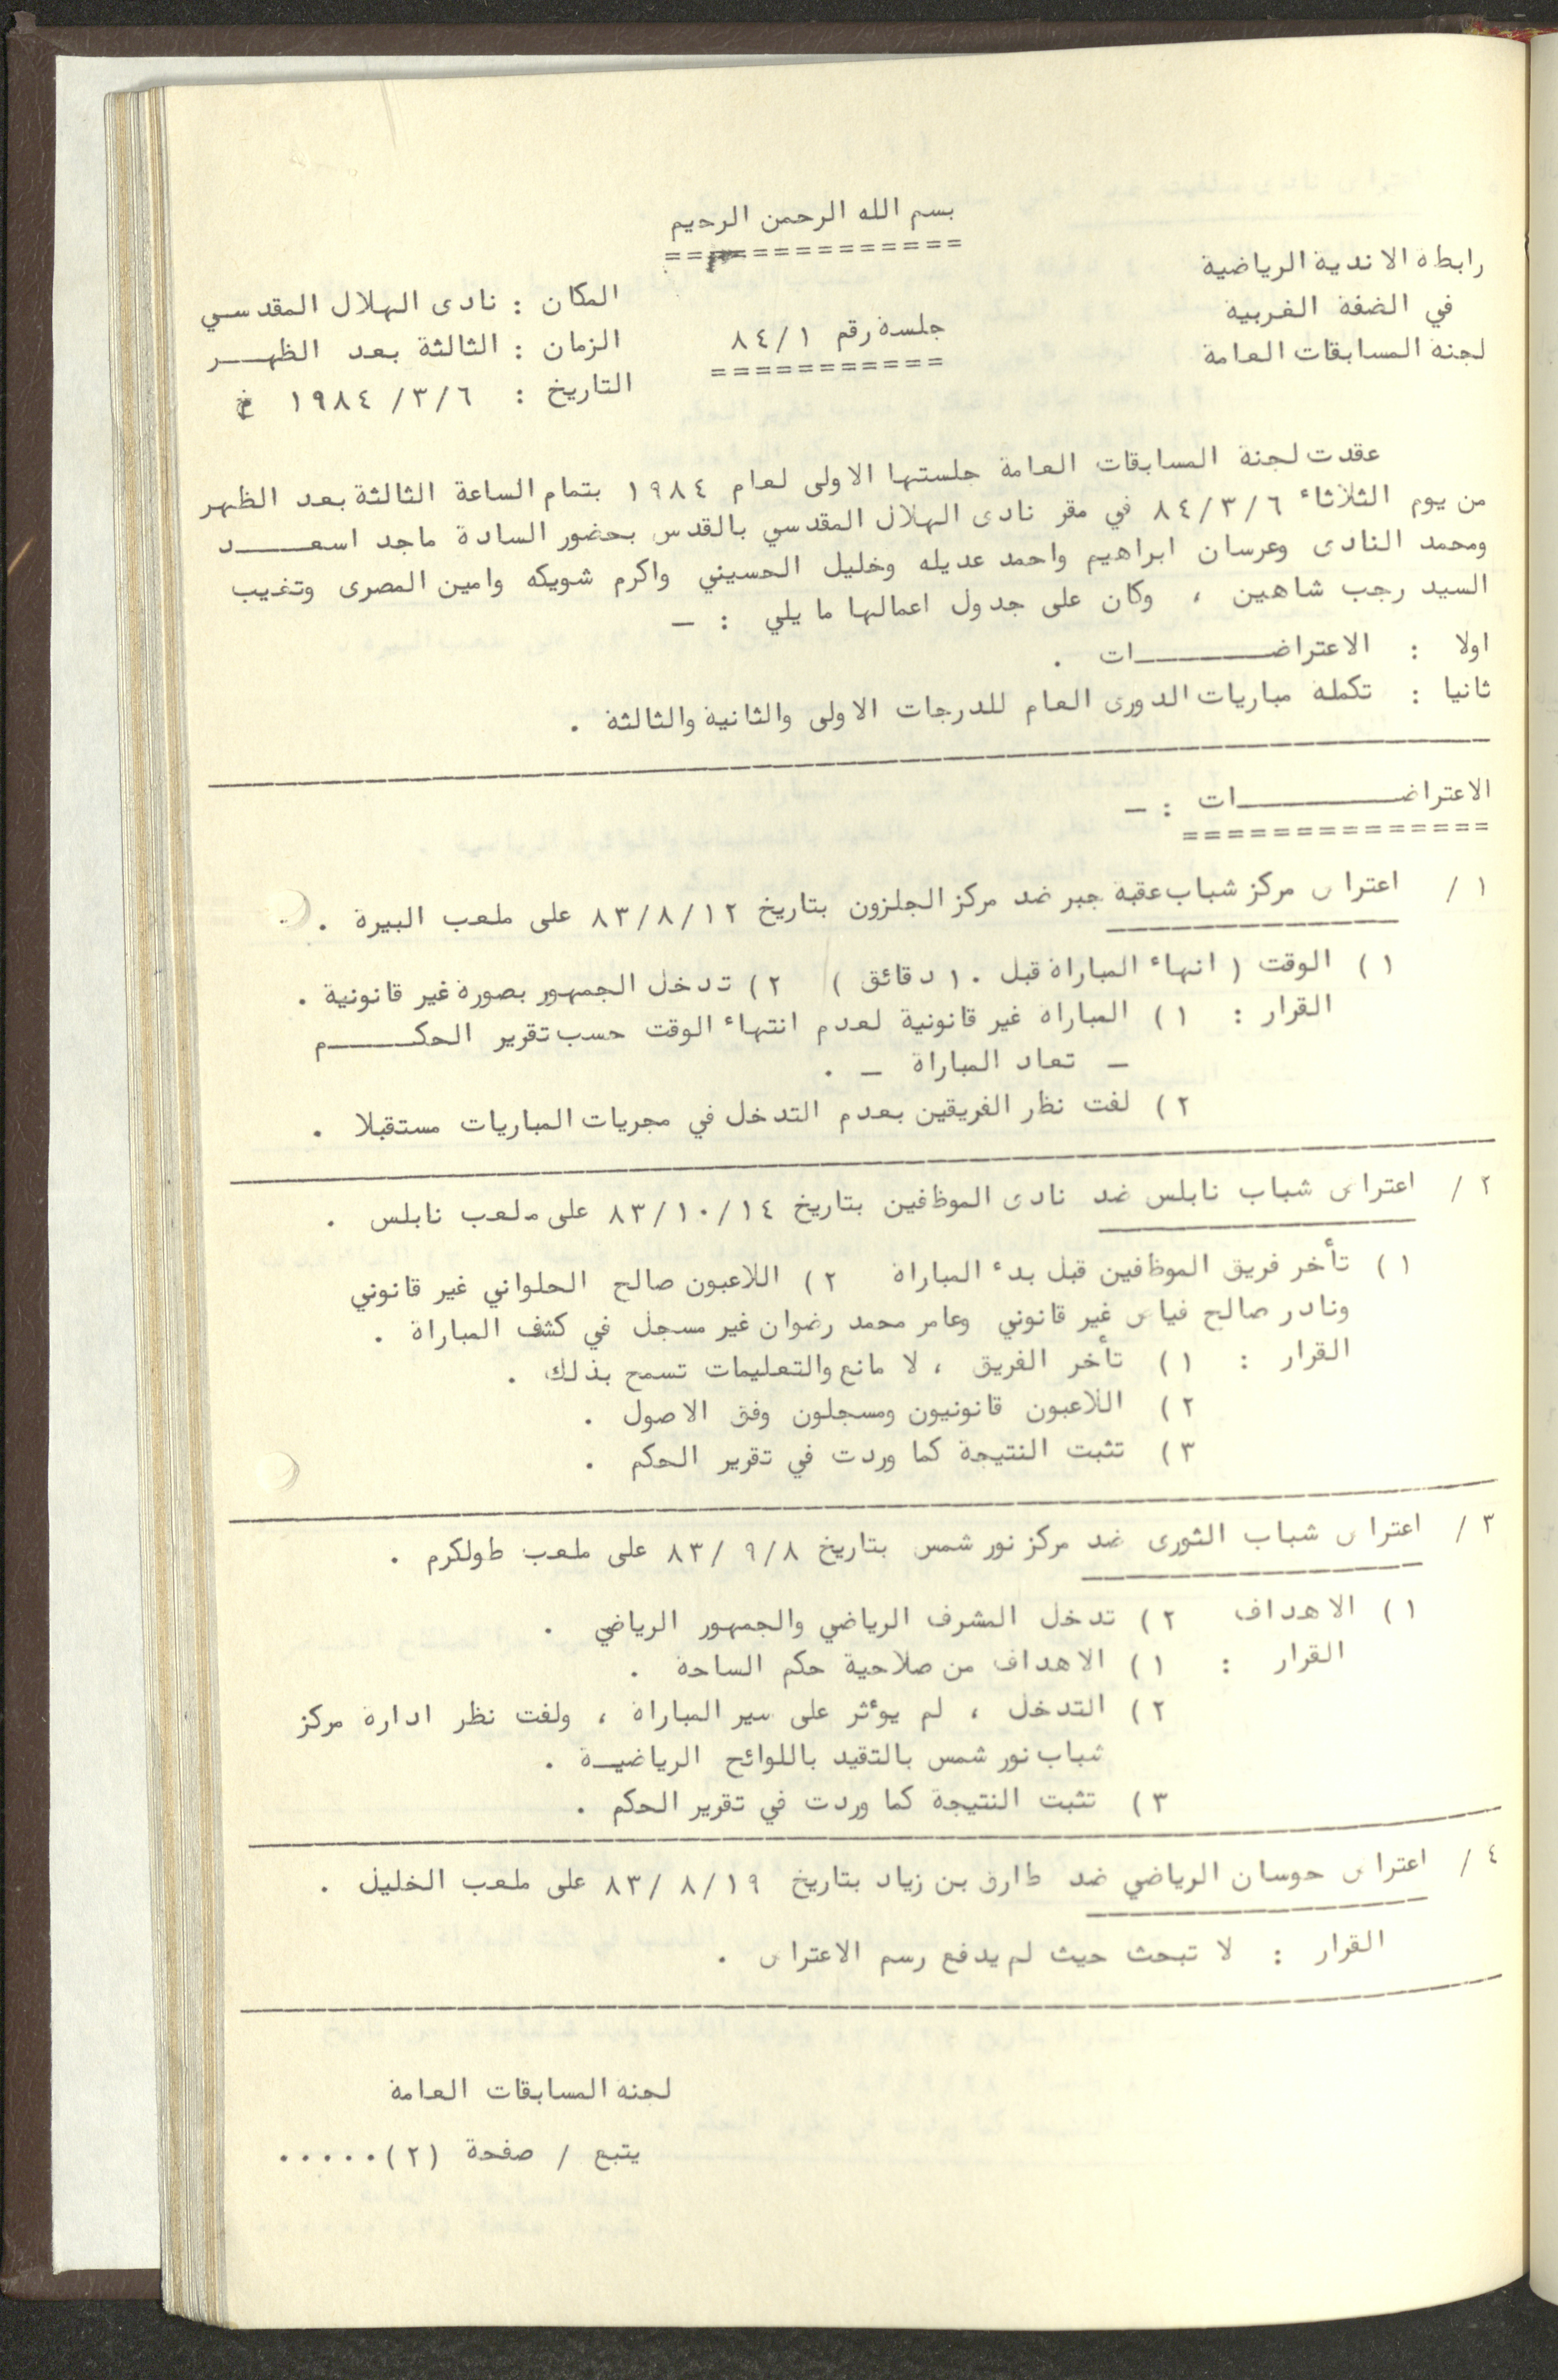 بسم الله الرحمن الرحيم
رابطة الاندية الرياضية
في الضفة الغربية
لجنة المسابقات العامة
جلسة رقم ٨٤/١
المكان : نادى الهلال المقدسي
الزمان : الثالثة بعد الظهـــر
التاريخ : ١٩٨٤ /٣/٦ م
عقدت لجنة المسابقات العامة جلستها الاولى لعام ١٩٨٤ بتمام الساعة الثالثة بعد الظهر
من يوم الثلاثاء ٨٤/٣/٦ في مقر نادى الهلال المقدسي بالقدس بحضور السادة ماجد اسعــــد
ومحمد النادى وعرسان ابراهيم واحمد عديله وخليل الحسيني واكرم شويكه وامين المصرى وتغيب
السيد رجب شاهين ، وكان على جدول اعمالها ما يلي : –
اولا : الاعتراضــــــات .
ثانيا : تكملة مباريات الدورى العام للدرجات الاولى والثانية والثالثة .
الاعتراضــــــات : –
١ / اعتراض مركز شباب عقبة جبر ضد مركز الجلزون بتاريخ ٨٣/٨/١٢ على ملعب البيرة .
١ ) الوقت ( انهاء المباراة قبل ١٠ دقائق ) ٢ ) تدخل الجمهور بصورة غير قانونية .
القرار : ١ ) المباراة غير قانونية لعدم انتهاء الوقت حسب تقرير الحكــــم
– تعاد المباراة – .
٢ ) لفت نظر الفريقين بعدم التدخل في مجريات المباريات مستقبلا .
٢ / اعتراض شباب نابلس ضد نادى الموظفين بتاريخ ٨٣/١٠/١٤ على ملعب نابلس .
١ ) تأخر فريق الموظفين قبل بدء المباراة ٢ ) اللاعبون صالح الحلواني غير قانوني
ونادر صالح فياض غير قانوني وعامر محمد رضوان غير مسجل في كشف المباراة .
القرار : ١ ) تأخر الفريق ، لا مانع والتعليمات تسمح بذلك .
٢ ) اللاعبون قانونيون ومسجلون وفق الاصول .
٣ ) تثبت النتيجة كما وردت في تقرير الحكم .
٣ / اعتراض شباب الثورى ضد مركز نور شمس بتاريخ ٨٣/ ٩/٨ على ملعب طولكرم .
١ ) الاهداف ٢ ) تدخل المشرف الرياضي والجمهور الرياضي .
القرار : ١ ) الاهداف من صلاحية حكم الساحة .
٢ ) التدخل ، لم يوءثر على سير المباراة ، ولفت نظر ادارة مركز
شباب نور شمس بالتقيد باللوائح الرياضيــة .
٣ ) تثبت النتيجة كما وردت في تقرير الحكم .
٤ / اعتراض حوسان الرياضي ضد طارق بن زياد بتاريخ ٨٣/ ٨/١٩ على ملعب الخليل .
القرار : لا تبحث حيث لم يدفع رسم الاعتراض .
لجنة المسابقات العامة
يتبع / صفحة (٢) .....